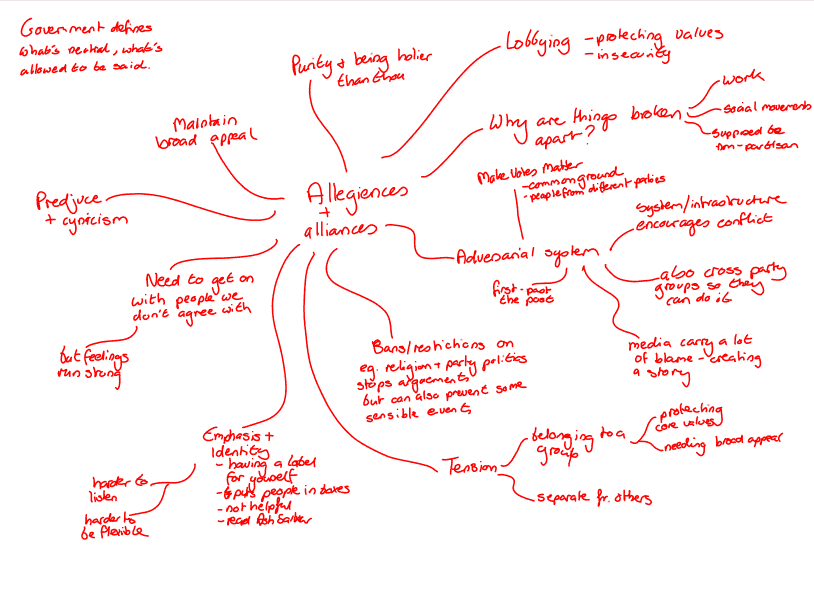 Government defines
what's neutral, what's
allowed to be said.
Purity + being holier
than thou
Lobbying - protecting values
- insecurity
Why are things broken
apart?
work
social movements
supposed to be
non-partisan
Maintain
broad appeal
Make Votes Matter
- common ground
- people from different parties
Predjuce
+ cynicism
Allegiences
+
alliances
system/infrastructure
encourages conflict
Adversarial system
first-past
the post
also cross party
groups so they
can do it
media carry a lot
of blame - creating
a story
Need to get on
with people we
don't agree with
but feelings
run strong
Bans/restrictions on
eg. religion + party politics
stops arguements
but can also prevent some
sensible events
Emphasis +
Identity
- having a label
for yourself
- puts people in boxes
- not helpful
- read Ash Sarkar
harder to
listen
harder to
be flexible
Tension
belonging to a
group
protecting
core values
needing broad appeal
separate fr. others